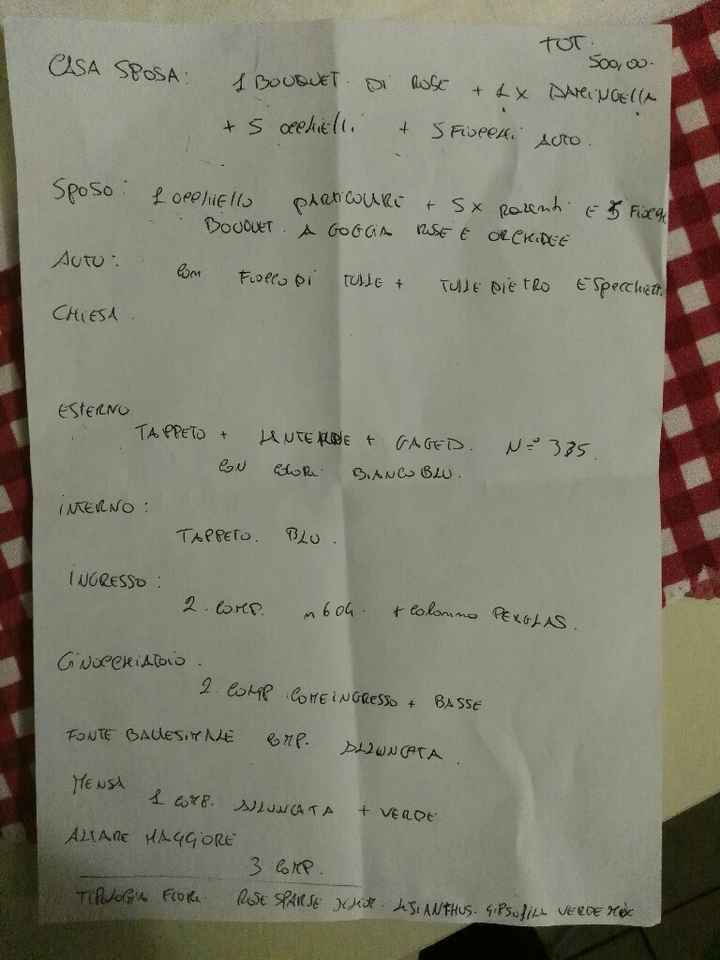 TOT.
500,00.
CASA SPOSA: 1 BOUQUET. DI ROSE + 1 X DAMINGELLA
+ 5 occhielli + 5 FIOCCHI AUTO.
SPOSO: 1 occhiello PARTICOLARE + 5 X parenti E 5 Fiocchi
BOUQUET. A GOCCIA ROSE E ORCHIDEE
AUTO: Com FIOCCO DI TULLE + TULLE DIETRO E Specchiett.
CHIESA.
ESTERNO
TAPPETO + LANTERNE + GAGED. N=° 385.
CON COLORI BIANCO BLU.
INTERNO:
TAPPETO. BLU.
INGRESSO:
2. COMP. + colonino PEXGLAS.
GINOCCHIATOIO.
2 COMP. COME INGRESSO + BASSE
FONTE BATTESIMALE COMP. ALLUNGATA.
MENSA
1 COMP. ALLUNGATA + VERDE
ALTARE MAGGIORE
3 COMP.
TIPOLOGIA FIORI. ROSE SPARSE LISIANTHUS. GIPSOFILL VERDE MIX